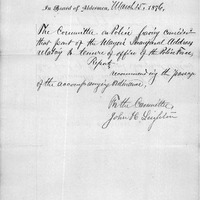 In Board of Aldermen, March 15, 1876.
The Committee on Police having consider
that part of the Mayor's Inaugural Address
relating to tenure of office of the Police Force,
Report
recommending the passage
of the accompanying Ordinance.
For the Committee,
John H.